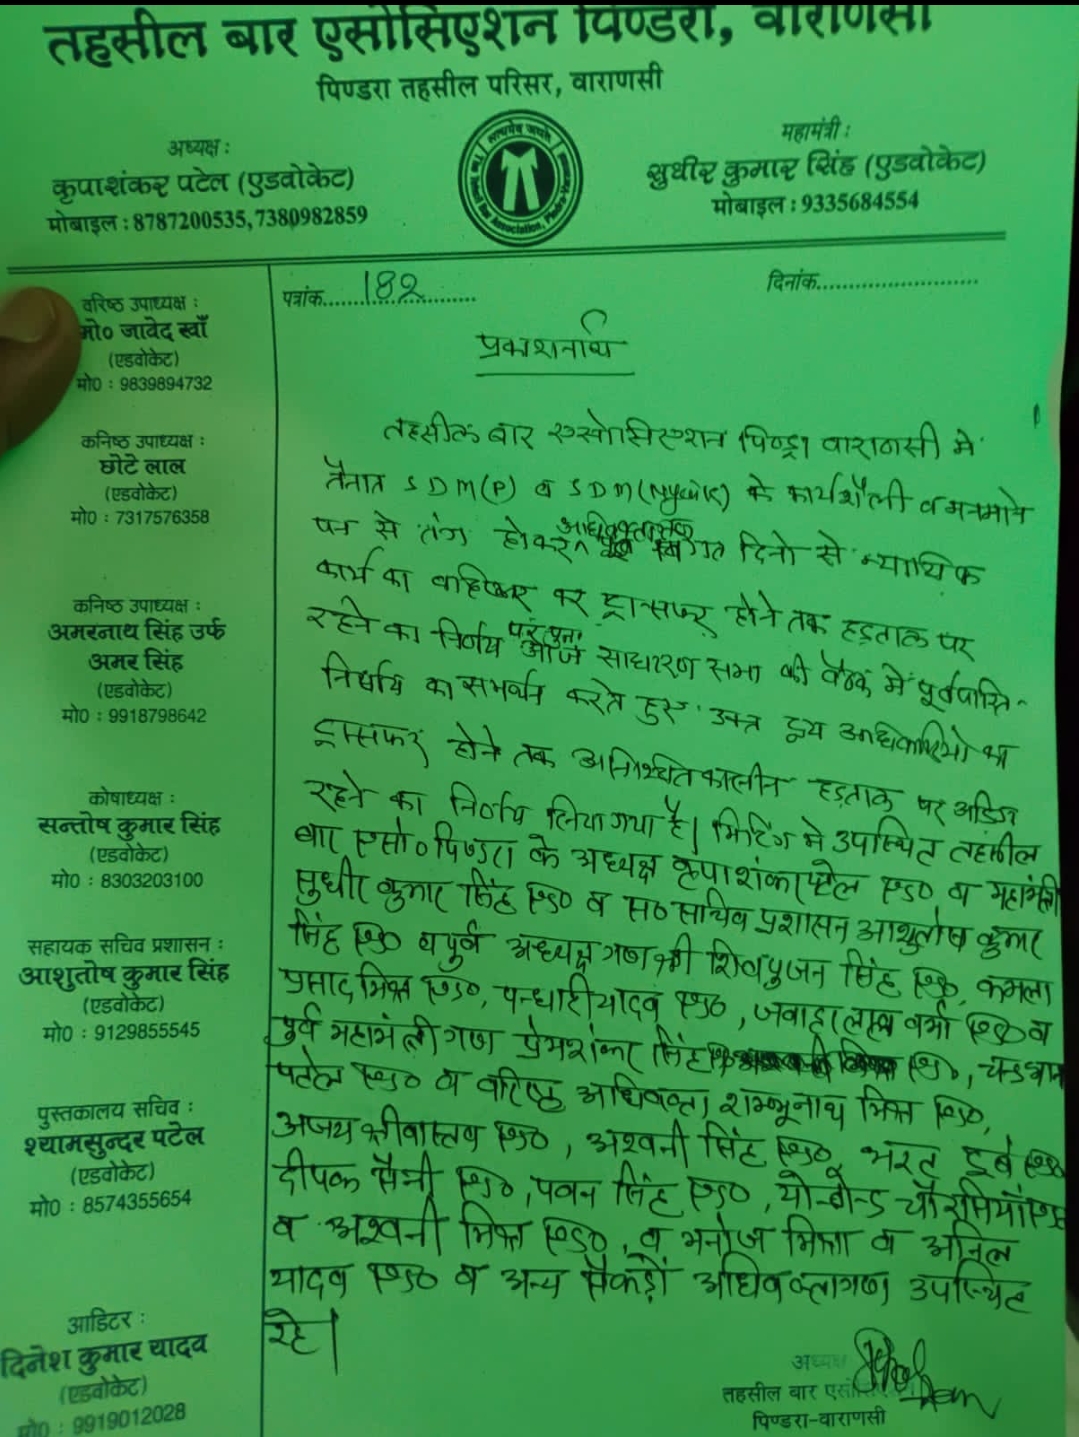 तहसील बार एसोसिएशन पिण्डरा, वाराणसी
पिण्डरा तहसील परिसर, वाराणसी
अध्यक्ष :
कृपाशंकर पटेल (एडवोकेट)
मोबाइल : 8787200535, 7380982859
महामंत्री :
सुधीर कुमार सिंह (एडवोकेट)
मोबाइल : 9335684554
पत्रांक 182
दिनांक
वरिष्ठ उपाध्यक्ष :
मो० जावेद खाँ
(एडवोकेट)
मो0 : 9839894732
कनिष्ठ उपाध्यक्ष :
छोटे लाल
(एडवोकेट)
मो0 : 7317576358
कनिष्ठ उपाध्यक्ष :
अमरनाथ सिंह उर्फ
अमर सिंह
(एडवोकेट)
मो0 : 9918798642
कोषाध्यक्ष :
सन्तोष कुमार सिंह
(एडवोकेट)
मो0 : 8303203100
सहायक सचिव प्रशासन :
आशुतोष कुमार सिंह
(एडवोकेट)
मो0 : 9129855545
पुस्तकालय सचिव :
श्यामसुन्दर पटेल
(एडवोकेट)
मो0 : 8574355654
आडिटर :
दिनेश कुमार यादव
(एडवोकेट)
मो0 : 9919012028
प्रकाशनार्थ
तहसील बार एसोसिएशन पिण्ड्रा वाराणसी में
तैनात SDM(P) व SDM(Nyayik) के कार्यशैली व मनमाने
पन से तंग होकर अधिवक्तागण गत दिनो से न्यायिक
कार्य का बहिष्कार कर ट्रान्सफर होने तक हड़ताल पर
रहने का निर्णय परंतु पुनः आज साधारण सभा की बैठक में पूर्व पारित
निर्णय का समर्थन करते हुए उक्त द्वय अधिकारियो का
ट्रान्सफर होने तक अनिश्चित कालीन हड़ताल पर अडिग
रहने का निर्णय लिया गया है। मिटिंग मे उपस्थित तहसील
बार एसो० पिण्डरा के अध्यक्ष कृपाशंकर पटेल एड० व महामंत्री
सुधीर कुमार सिंह एड० व स० सचिव प्रशासन आशुतोष कुमार
सिंह एड० व पुर्व अध्यक्ष गण श्री शिवपुजन सिंह एड०, कमला
प्रसाद मिश्रा एड०, पन्धारी यादव एड०, जवाहर लाल वर्मा एड० व
पुर्व महामंत्री गण प्रेमशंकर सिंह एड०, चन्द्रभान
पटेल एड० व वरिष्ठ अधिवक्ता शम्भूनाथ मिश्रा एड०,
अजय श्रीवास्तव एड०, अश्वनी सिंह एड०, भरत दुबे एड०
दीपक सैनी एड०, पवन सिंह एड०, चौरसिया एड०
व अश्वनी मिश्रा एड०, व मनोज मिश्रा व अनिल
यादव एड० व अन्य सैकड़ों अधिवक्तागण उपस्थित
रहे।
अध्यक्ष
तहसील बार एसोसिएशन
पिण्डरा-वाराणसी